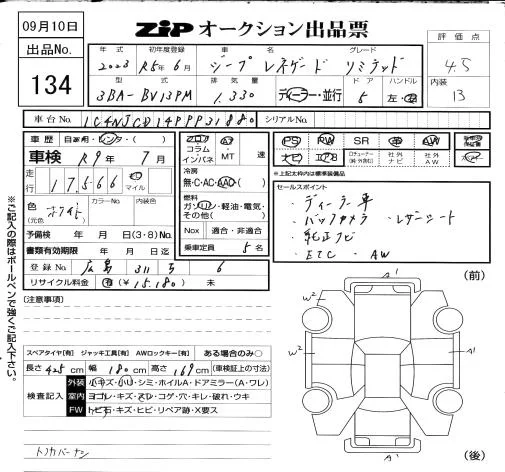 09月10日
出品No.
134
ZIP オークション出品票
年式 初年度登録 車名 グレード
2023 R5年6月 ジープ レネゲード リミテッド
型式 排気量 ドア ハンドル
3BA-BV13PM 1.330 ディーラー・並行 5 左・右
評価点
4.5
内装
13
車台No. シリアルNo.
車歴 自家用・レンタ・( )
車検 R9年 7月
走行 17,566 マイル
色 (元色) カラーNo. 内装色
予備検 年 月 日(3・8)No.
書類有効期限 年 月 日迄
登録No. 広島 311 6
リサイクル料金 有(¥15,180) 未
コラム インパネ ・MT 速
冷房
無・C・AC・AAC・( )
燃料
ガソリン・軽油・電気・その他( )
Nox 適合・非適合
乗車定員 5名
PS PW SR 革 AW
ナビ 社外ナビ 社外AW
*上記太枠内は標準装備品
セールスポイント
・ディーラー車
・バックカメラ ・レザーシート
・純正ナビ
・ETC ・AW
※ご記入の際はボールペンで強くご記入下さい。
(注意事項)
スペアタイヤ[有] ジャッキ工具[有] AWロックキー[有] ある場合のみ○
長さ 425cm 幅 180cm 高さ 169cm (車検証上の寸法)
検査記入
外装 小キズ・小凹・シミ・ホイルA・ドアミラー(A・ワレ)
室内 ヨゴレ・キズ・スレ・コゲ・穴・キレ・破れ・ウキ
FW トビ石・キズ・ヒビ・リペア跡・X要ス
トノカバーナシ
(前)
A'
W2
W2
A'
A'
(後)